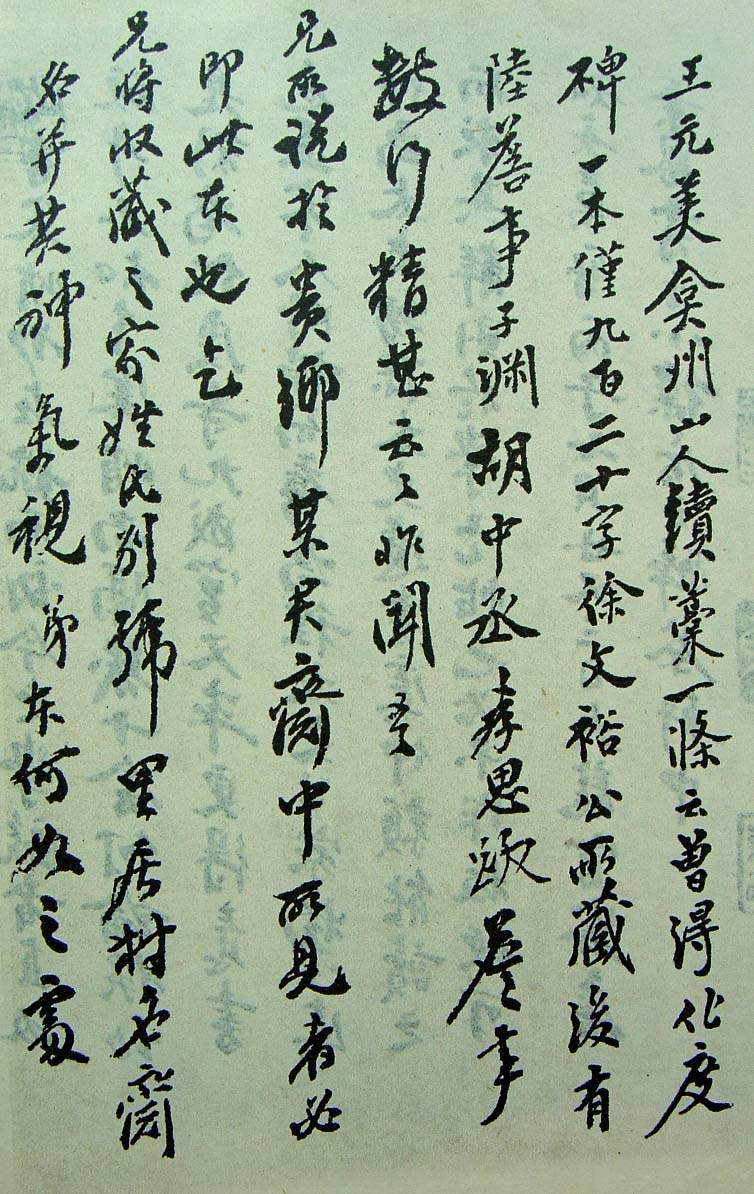 王元美弇州山人續藁一條云曾得化度
碑一本僅九百二十字徐文裕公所藏後有
陸詹事子淵胡中丞孝思跋詹事
數行精甚云云昨聞吾
兄所說於貴鄉某君齋閣中所見者必
即此本也乞
兄將收藏之家姓氏別號里居村名齋閣
名并其神氣視弟本何如之處